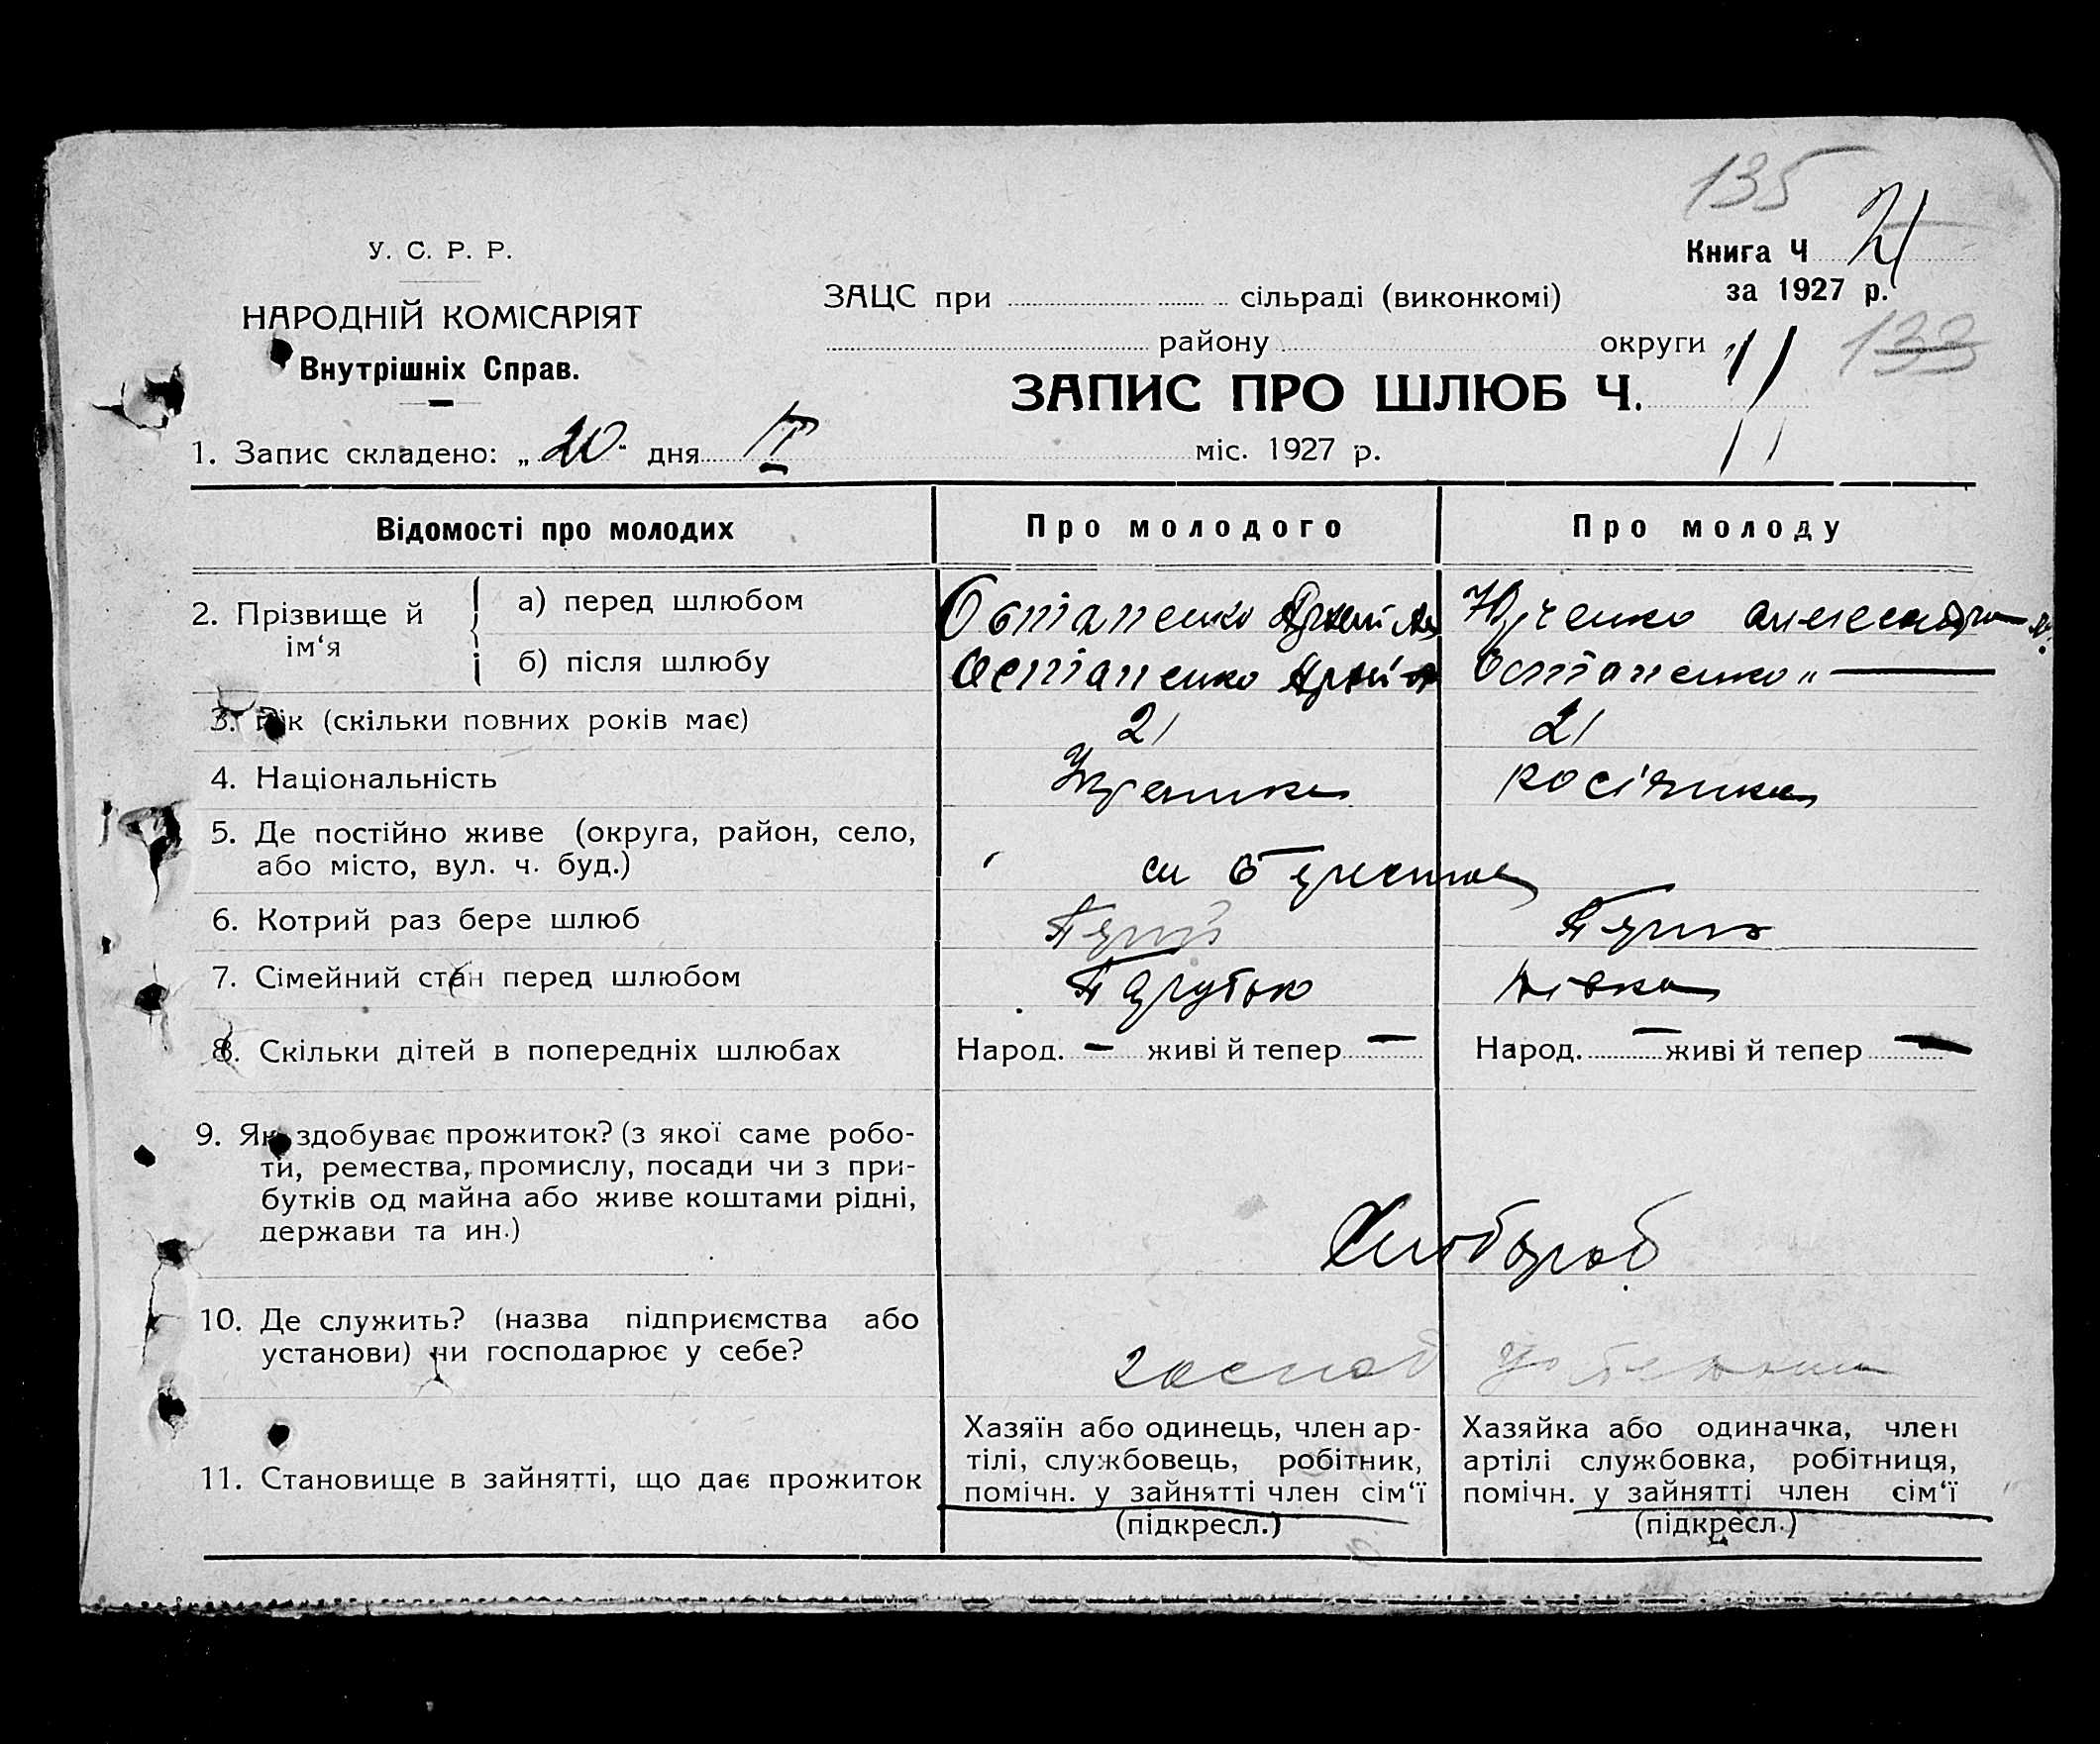 135
У. С. Р. Р.
НАРОДНІЙ КОМІСАРІЯТ
Внутрішніх Справ.
Книга Ч 21
за 1927 р.
133
ЗАЦС при сільраді (виконкомі)
району округи
ЗАПИС ПРО ШЛЮБ Ч. 11
1. Запис складено: „ 20 " дня міс. 1927 р.
Відомості про молодих Про молодого Про молоду
2. Прізвище й ім‘я
а) перед шлюбом Остапенко Юрченко
б) після шлюбу Остапенко Остапенко "
3. Рік (скільки повних років має) 21 21
4. Національність
5. Де постійно живе (округа, район, село,
або місто, вул. ч. буд.)
6. Котрий раз бере шлюб
7. Сімейний стан перед шлюбом Парубок дівка
8. Скільки дітей в попередніх шлюбах Народ. — живі й тепер — Народ. — живі й тепер —
9. Як здобуває прожиток? (з якої саме робо-
ти, ремества, промислу, посади чи з при-
бутків од майна або живе коштами рідні,
держави та ин.)
Хлібороб
10. Де служить? (назва підприємства або
установи) чи господарює у себе?
господ
11. Становище в зайнятті, що дає прожиток
Хазяїн або одинець, член ар-
тілі, службовець, робітник,
помічн. у зайнятті член сім‘ї
(підкресл.)
Хазяйка або одиначка, член
артілі службовка, робітниця,
помічн. у зайнятті член сім‘ї
(підкресл.)